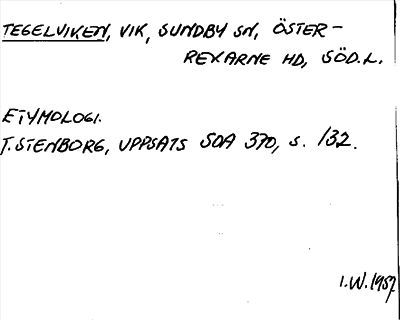 TEGELVIKEN, VIK, SUNDBY SN, ÖSTER-
REKARNE HD, SÖD.L.
ETYMOLOGI.
T. STENBORG, UPPSATS SOA 370, S. 132.
I.W. 1957